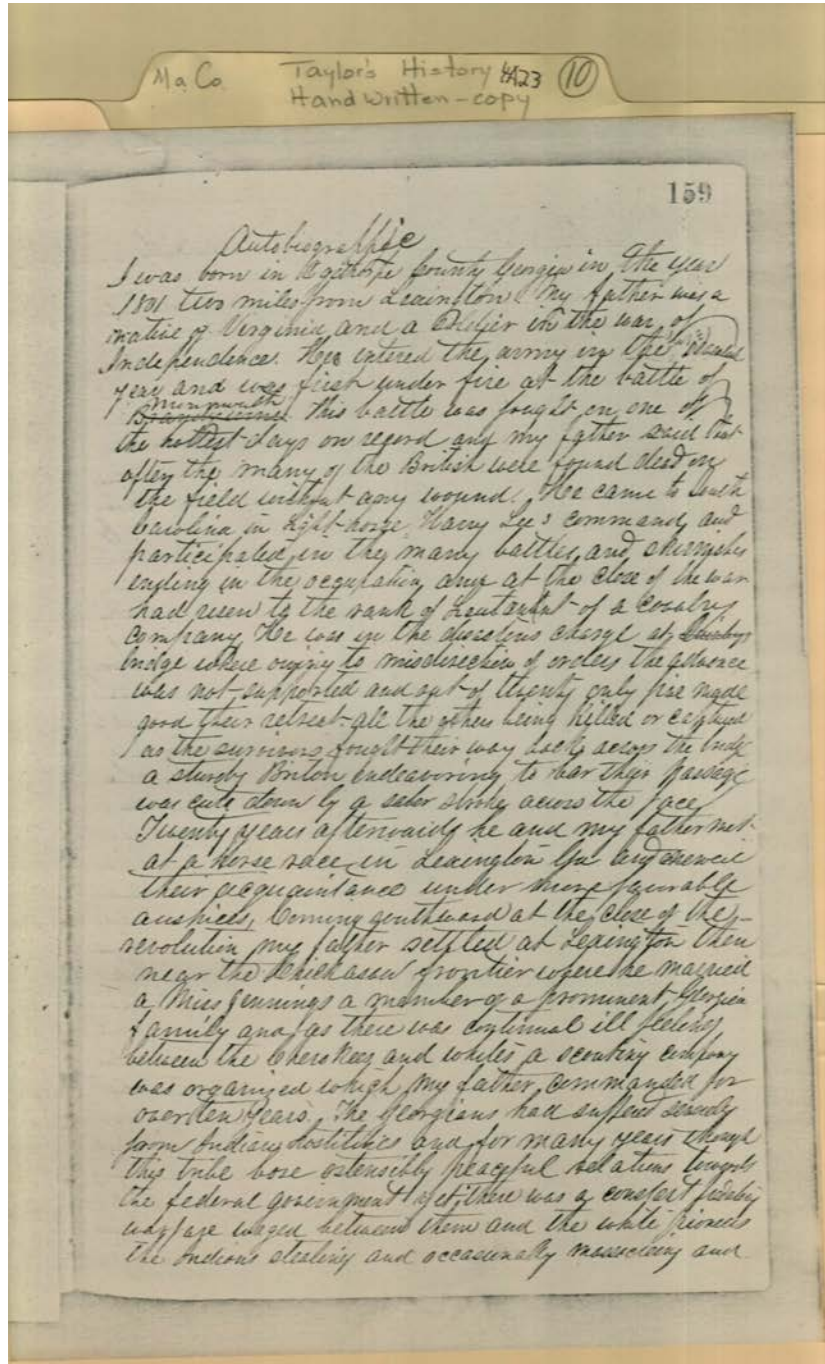 Ma Co. Taylor's History 4A23 10
Hand Written - copy
159
Autobiographic
I was born in County Georgia in the year
1801 two miles from Lexington. My father was a
native of Virginia and a in the war of
Independence. He entered the army in the
year and was first under fire at the battle of
Monmouth
this battle was fought on one of
the hottest days on regord and my father said that
after the many of the British were found dead on
the field without any wound. He came to South
Carolina in Light-horse Harry Lee's command and
participated in the many battles and skirmishes
ending in the and at the close of the war
had risen to the rank of of a
company. He was in the disastrous charge at
bridge where owing to misdirection of orders the advance
was not supported and out of twenty only five made
good their retreat all the others being killed or captured
as the survivors fought their way back across the bridge
a sturdy Briton endeavoring to bar their passage
was cut down by a saber stroke across the face
Twenty years afterwards he and my father met
at a horse race in Lexington Ga and
their acquaintance under more favorable
auspices. Coming southward at the close of the
revolution my father settled at Lexington then
near the frontier where he married
a Miss Jennings a member of a prominent Georgia
family and as there was continual ill feeling
between the Cherokees and whites a scouting company
was organized which my father commanded for
over ten years. The Georgians had
from Indian and for many years though
this tribe bore ostensibly peaceful relations towards
the federal government yet there was a constant
warfare waged between them and the white pioneers
the Indians stealing and occasionally and